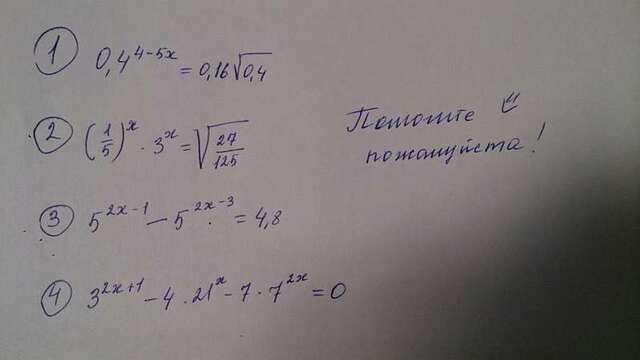 1 0,4^(4-5x) = 0,16√0,4
2 (1/5)^x · 3^x = √(27/125)
Помогите
пожалуйста!
3 5^(2x-1) - 5^(2x-3) = 4,8
4 3^(2x+1) - 4 · 21^x - 7 · 7^(2x) = 0